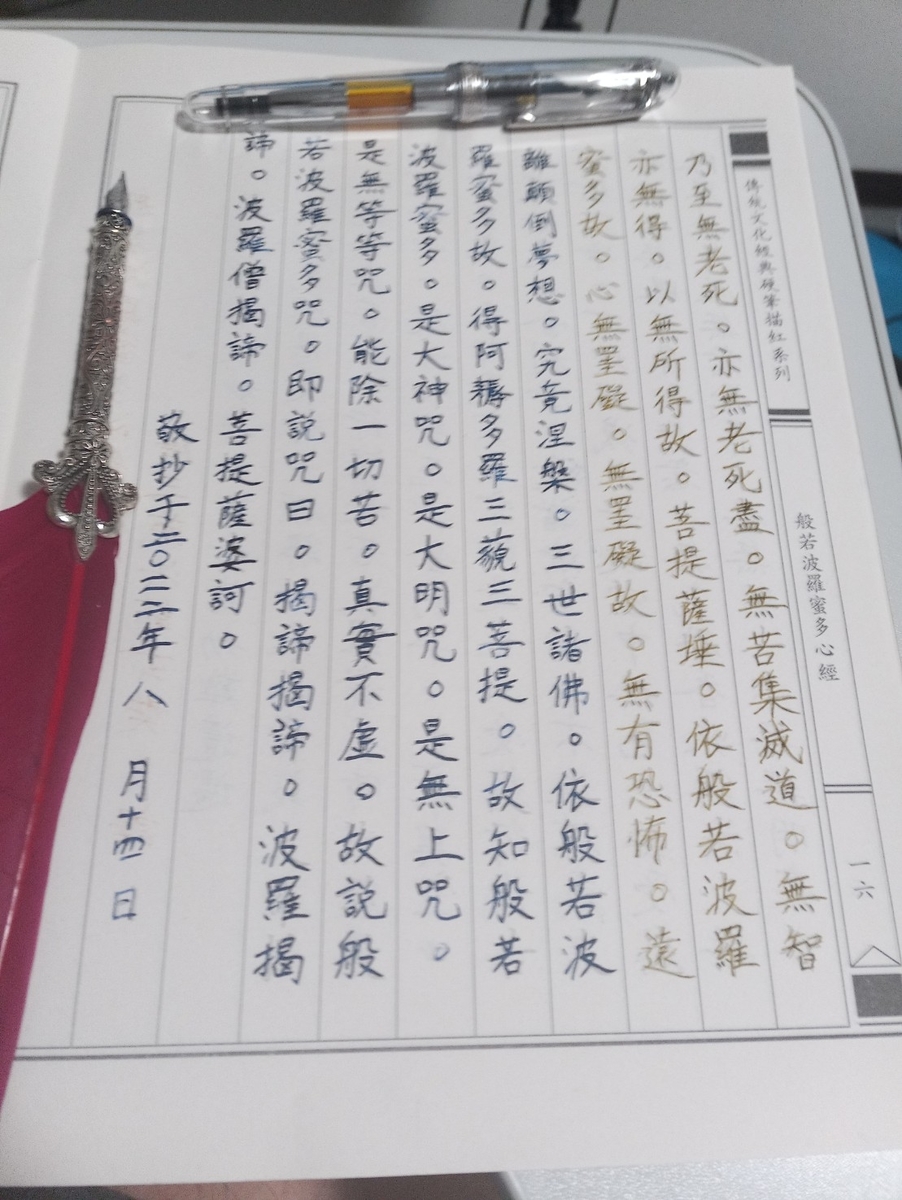 傳統文化經典硬筆描紅系列
般若波羅蜜多心經
一六
乃至無老死。亦無老死盡。無苦集滅道。無智
亦無得。以無所得故。菩提薩埵。依般若波羅
蜜多故。心無罣礙。無罣礙故。無有恐怖。遠
離顛倒夢想。究竟涅槃。三世諸佛。依般若波
羅蜜多故。得阿耨多羅三藐三菩提。故知般若
波羅蜜多。是大神咒。是大明咒。是無上咒。
是無等等咒。能除一切苦。真實不虛。故說般
若波羅蜜多咒。即說咒曰。揭諦揭諦。波羅揭
諦。波羅僧揭諦。菩提薩婆訶。
敬抄于二〇二二年八月十四日